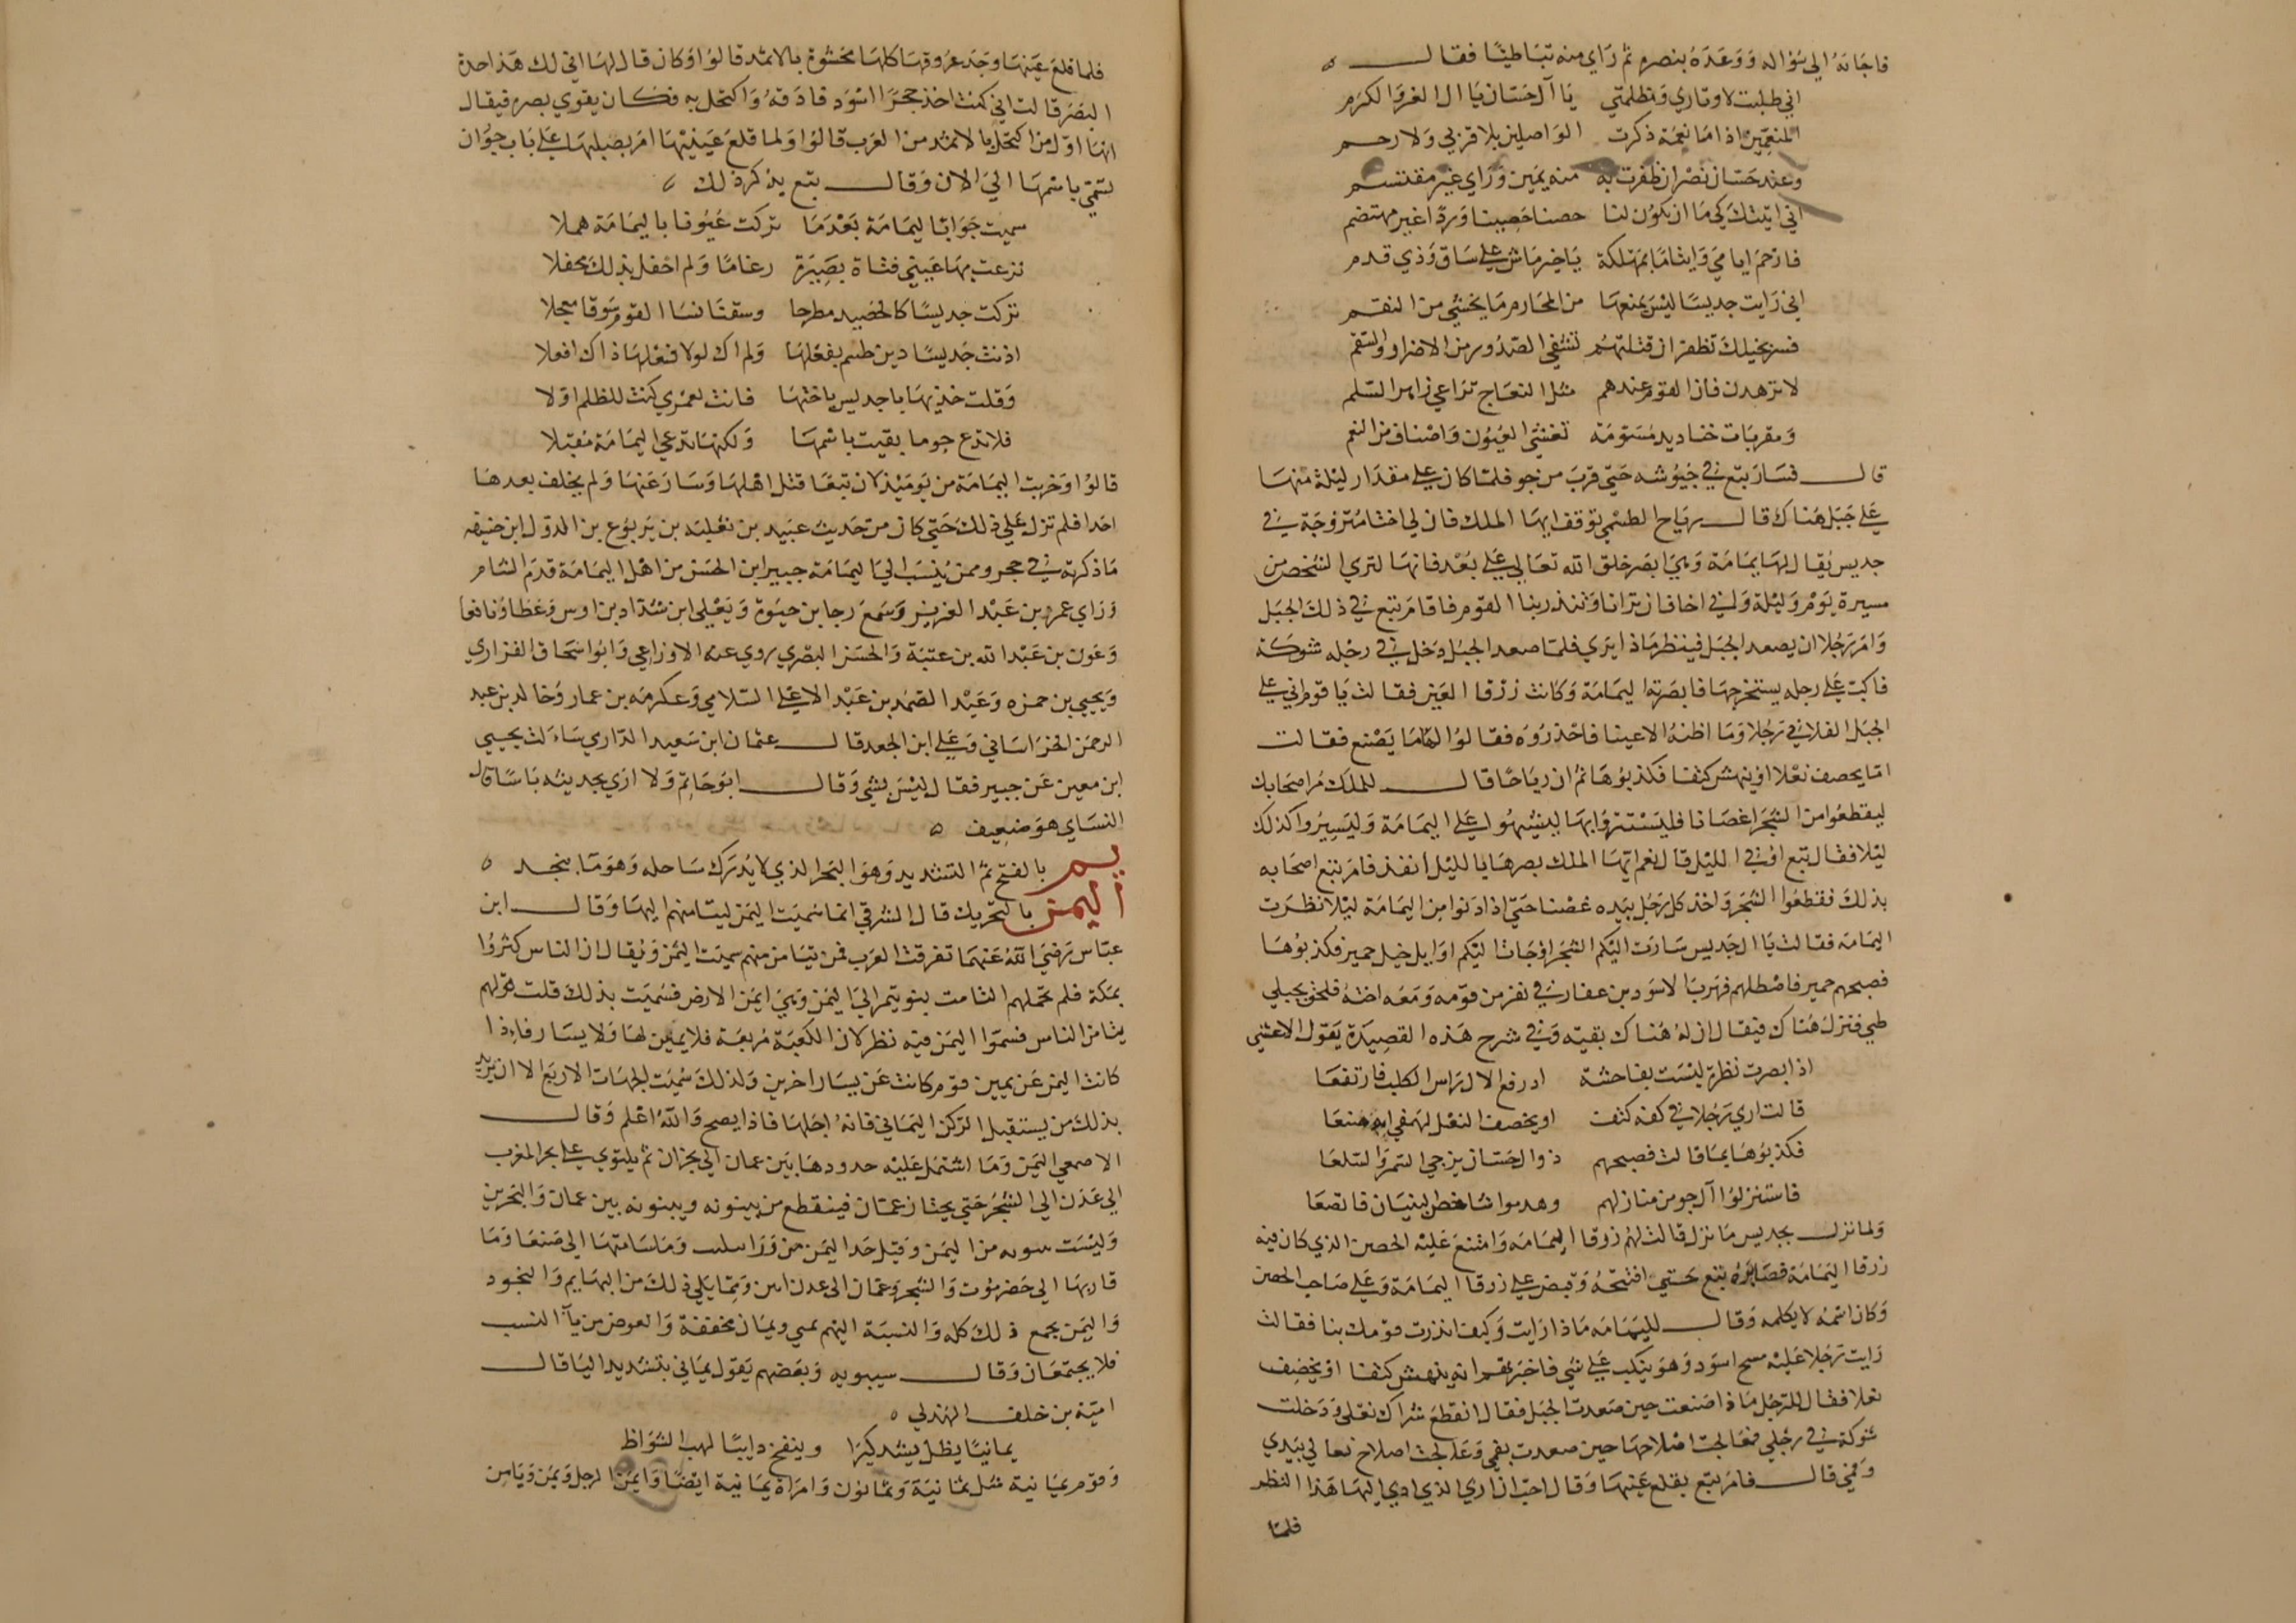 فاجابه الي سؤاله ووعده بنصره ثم راي منه تباطيا فقال ٥
اني طلبت لاوتاري ومظلمتي يا آل حسان يا ال الغر والكرم
المنعمين اذا ما نعمة ذكرت الواصلين بلا قربي ولا رحم
وعند حسان نصر ان ظفرت به منه يمين وراي غير مقتسم
اني اتيتك كي ما ان يكون لنا حصنا حصينا وردا غير مهتضم
فارحم ايامي وايتاما بمهلكة يا خير ماش علي ساق وذي قدم
اني رايت جديسا ليس يمنعها من المحارم ما يخشي من النقم
فسر بخيلك تظفر ان قتلتهم تشفي الصدور من الاضرار والسقم
لا تزهدن فان القوم عندهم مثل النعاج تراعي زاهر السلم
ومقربات خناديد مسومة تغشي العيون واصناف من النعم
قال فسار تبع في جيوشه حتي قرب من جو فلما كان علي مقدار ليلة منها
علي جبل هناك قال رياح الطسمي توقف ايها الملك فان لي اختا متزوجة في
جديس يقال لها يمامة وهي ابصر خلق الله تعالي علي بعد فانها لتري الشخص من
مسيرة يوم وليلة واني اخاف ان ترانا وتنذر بنا القوم فاقام تبع في ذلك الجبل
وامر رجلا ان يصعد الجبل فينظر ماذا يري فلما صعد الجبل دخل في رجله شوكة
فاكب علي رجله يستخرجها فابصرته اليمامة وكانت زرقا العين فقالت يا قوم اني علي
الجبل الفلاني رجلا وما اظنه الا عينا فاحذروه فقالوا لها ما يصنع فقالت
اما يخصف نعلا او ينهش كتفا فكذبوها ثم ان رياحا قال للملك مر اصحابك
ليقطعوا من الشجر اغصانا فليستتروا بها ليشبهوا علي اليمامة وليسيروا كذلك
ليلا فقال تبع اوفي الليل قال نعم ايها الملك بصرها بالليل انفذ فامر تبع اصحابه
بذلك فقطعوا الشجر واخذ كل رجل بيده غصنا حتي اذا دنوا من اليمامة ليلا نظرت
اليمامة فقالت يا ال جديس سارت اليكم الشجر او جاتا ليكم اوايل خيل حمير فكذبوها
فصبحهم حمير فاصطلمهم فهربا لاسود بن عفار في نفر من قومه ومعه اخته فلحق بجبلي
طي فنزل هناك فيقال ان له هناك بقيته وفي شرح هذه القصيدة يقول الاعشي
اذا بصرت نظرة ليست بفاحشة اذ رفع الال راس الكلب فارتفعا
قالت اري رجلا في كفه كتف او يخصف النعل لهفي ايه صنعا
فكذبوها بما قالت فصبحهم ذوال حسان يزجي السمر والسلعا
فاستنزلوا آل جو من منازلهم وهدموا شاخص البنيان فاتضعا
ولما نزل بجديس ما نزل قالت لهم زرقا اليمامة وامتنع عليه الحصن الذي كان فيه
زرقا اليمامة فصابره تبع حتي افتتحه وقبض علي زرقا اليمامة وعلي صاحب الحصن
وكان اسمه لا يكلمه وقال لليمامة ماذا رايت وكيف انذرت قومك بنا فقالت
رايت رجلا عليه مسح اسود وهو ينكب علي شي فاخبرتهم انه ينهش كتفا او يخصف
نعلا فقال للرجل ماذا صنعت حين صعدت الجبل فقال انقطع شراك نعلي ودخلت
شوكة في رجلي فعالجت اصلاحها حين صعدت بفمي وعالجت اصلاح نعالي بيدي
وفمي قال فامر تبع بقلع عينها وقال احب ان اري الذي اري اليها هذا النظر
فلما
فلما قلع عينها وجد عروقها كلها محشوة بالاثمد قالوا وكان قال لها اني لك هذا حدة
البصر قالت اني كنت اخذ حجرا اسود فادقه واكتحل به فكان يقوي بصره فيقال
انها اول من اكتحل بالاثمد من العرب قالوا ولما قلع عينيها امر بصلبها علي باب جو ان
تسمي باسمها الي الان وقال تبع يذكر ذلك ٥
سميت جوا باليمامة بعدما تركت عيونا باليمامة هملا
نزعت بها عيني فتاة بصيرة رغاما ولم احفل بذلك محفلا
تركت جديسا كالحصيد مطرحا وسقت نسا القوم سوقا معجلا
اذنت جديسا دين طسم بفعلها ولم اك لولا فعلها ذاك افعلا
وقلت خذيها يا جديس باختها فانت لعمري كنت للظلم اولا
فلا تدع جوما بقيت باسمها ولكنها تدعي اليمامة مقبلا
قالوا وخربت اليمامة من يوميذ لان تبعا قتل اهلها وسار عنها ولم يخلف بعدها
احدا فلم تزل علي ذلك حتي كان من حديث عبيد بن ثعلبه بن يربوع بن الدول ابن حنيفه
ما ذكرته في حجر وممن ينسب الي اليمامة جبير ابن الحسن من اهل اليمامة قدم الشام
وراي عمر بن عبد العزيز وسمع رجا بن حيوة ويعلي ابن شداد بن اوس وعطا ونافعا
وعون بن عبد الله بن عتبة والحسن البصري روي عنه الاوزاعي وابو اسحاق الفزاري
ويحيي بن حمزه وعبد الصمد بن عبد الاعلي السلامي وعكرمه بن عمار وخالد بن عبد
الرحمن الخراساني وعلي ابن الجعد قال عثمان ابن سعيد الداري سالت يحيي
ابن معين عن جبير فقال ليس بشي وقال ابو حاتم ولا اري بحديثه باسا قال
النساي هو ضعيف ٥
يم بالفتح ثم التشديد وهو البحر الذي لا يدرك ساحله وهو ما بنجد ٥
اليمن بالتحريك قال الشرقي انما سميت اليمن ليتامنهم اليها وقال ابن
عباس رضي الله عنهما تفرقت العرب فمن تيامن منهم سميت اليمن ويقال ان الناس كثروا
بمكة فلم تحملهم التامت بنو يمن الي اليمن وهي ايمن الارض فسميت بذلك قلت قولهم
يتامن الناس فسموا اليمن فيه نظر لان الكعبة مربعة فلا يمين لها ولا يسار فاذا
كانت اليمن عن يمين قوم كانت عن يسار اخرين وكذلك سميت الجهات الاربع الا ان يريد
بذلك من يستقبل الركن اليماني فانه اجلها فاذا يصح والله اعلم وقال
الاصمعي اليمن وما اشتمل عليه حدودها بين عمان الي نجران ثم يلتوي علي بحر العرب
الي عدن الي الشحر حتي يجتاز عمان فينقطع من بينونه وبينونه بين عمان والبحرين
وليست بينونه من اليمن وقيل حد اليمن من ورا تثليث وما سامتها الي صنعا وما
قاربها الي حضرموت والشحر وعمان الي عدن ابين وما يلي ذلك من التهايم والنجود
واليمن يجمع ذلك كله والنسبة اليهم يمني ويمان مخففة والعوض من يا النسب
فلا يجتمعان وقال سيبويه وبعضهم يقول يماني بتشديد اليا قال
امية بن خلف الهذلي ٥
يمانيا يظل يشد كيرا وينفخ دايبا لهب الشواظ
وقوم يمانية مثل ثمانية وثمانون وامراة يمانية ايضا وايمن الرجل ويمن ويامن